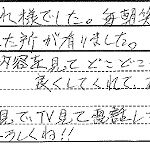 れ様でした。毎朝笑
た所が有りました。
内容を見て どこどこ
良くしてくれて、
見て、TV見て
しくね!!